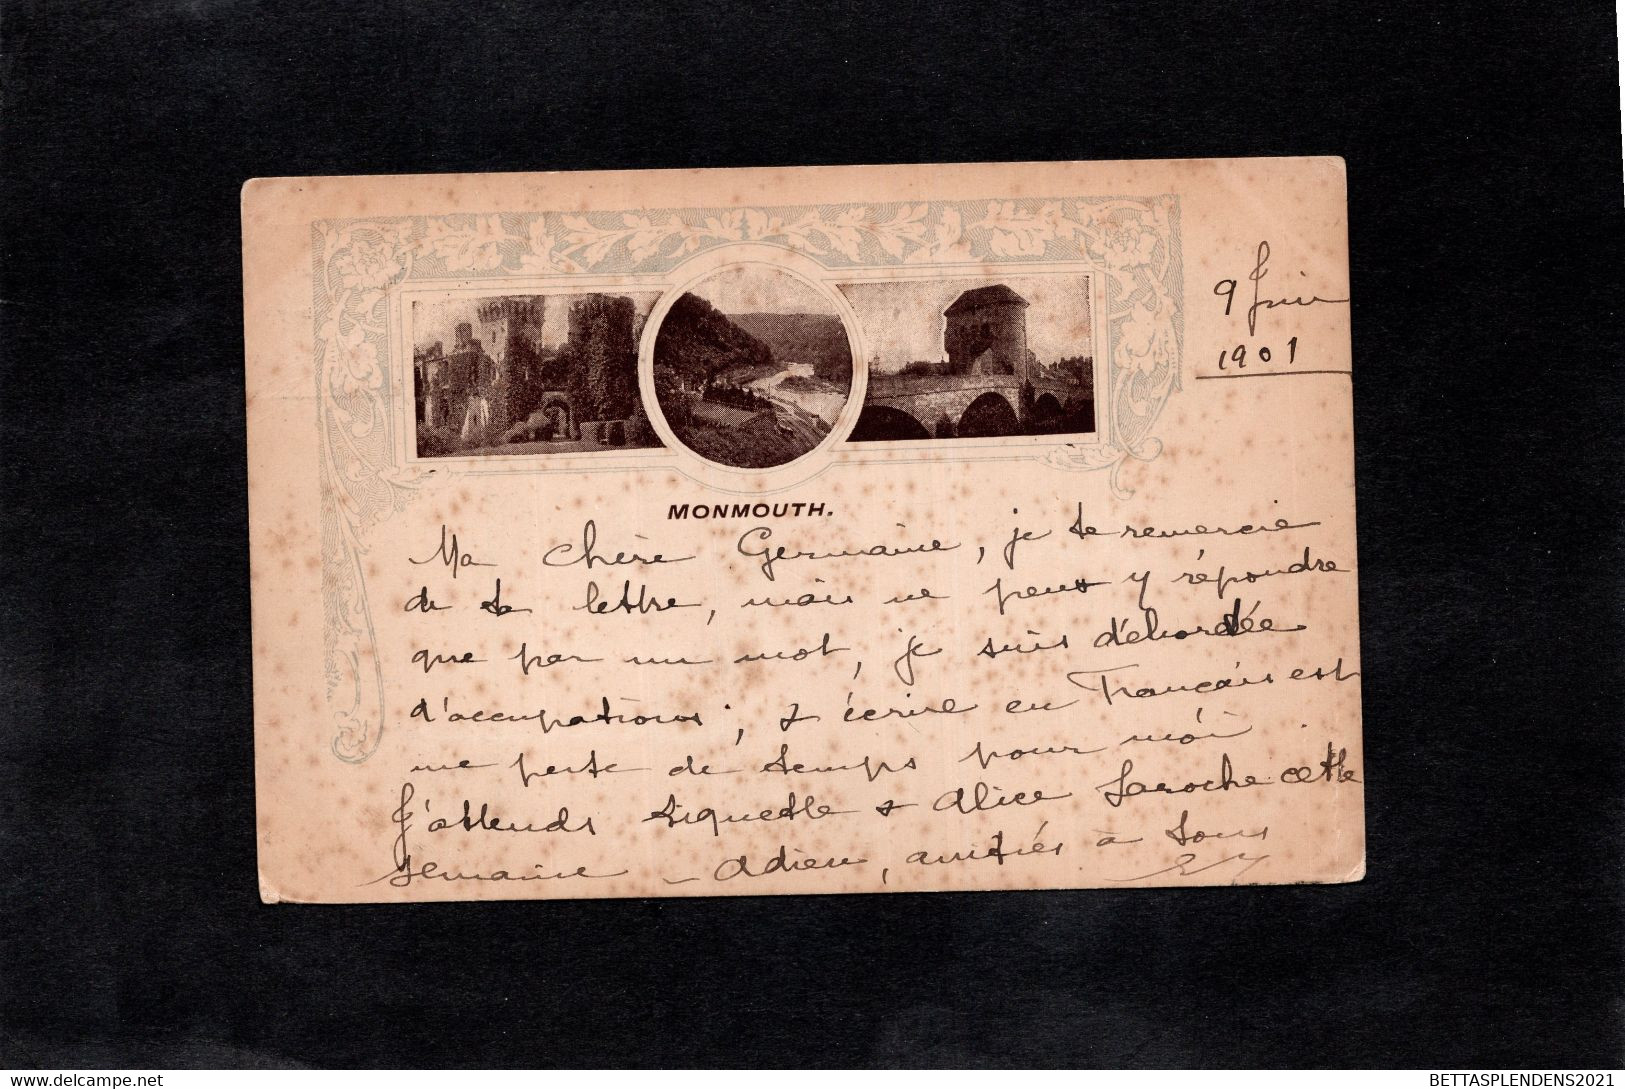 9 Juin
1901
MONMOUTH.
Ma chère Germaine, je te remercie
de ta lettre, mais ne peux y répondre
que par un mot, je suis débordée
d'occupations; & écrire en Français est
une perte de temps pour moi
J'attends Riquette & Alice Laroche cette
semaine - Adieu, amitiés à tous
BETTASPLENDENS2021
www.delcampe.net